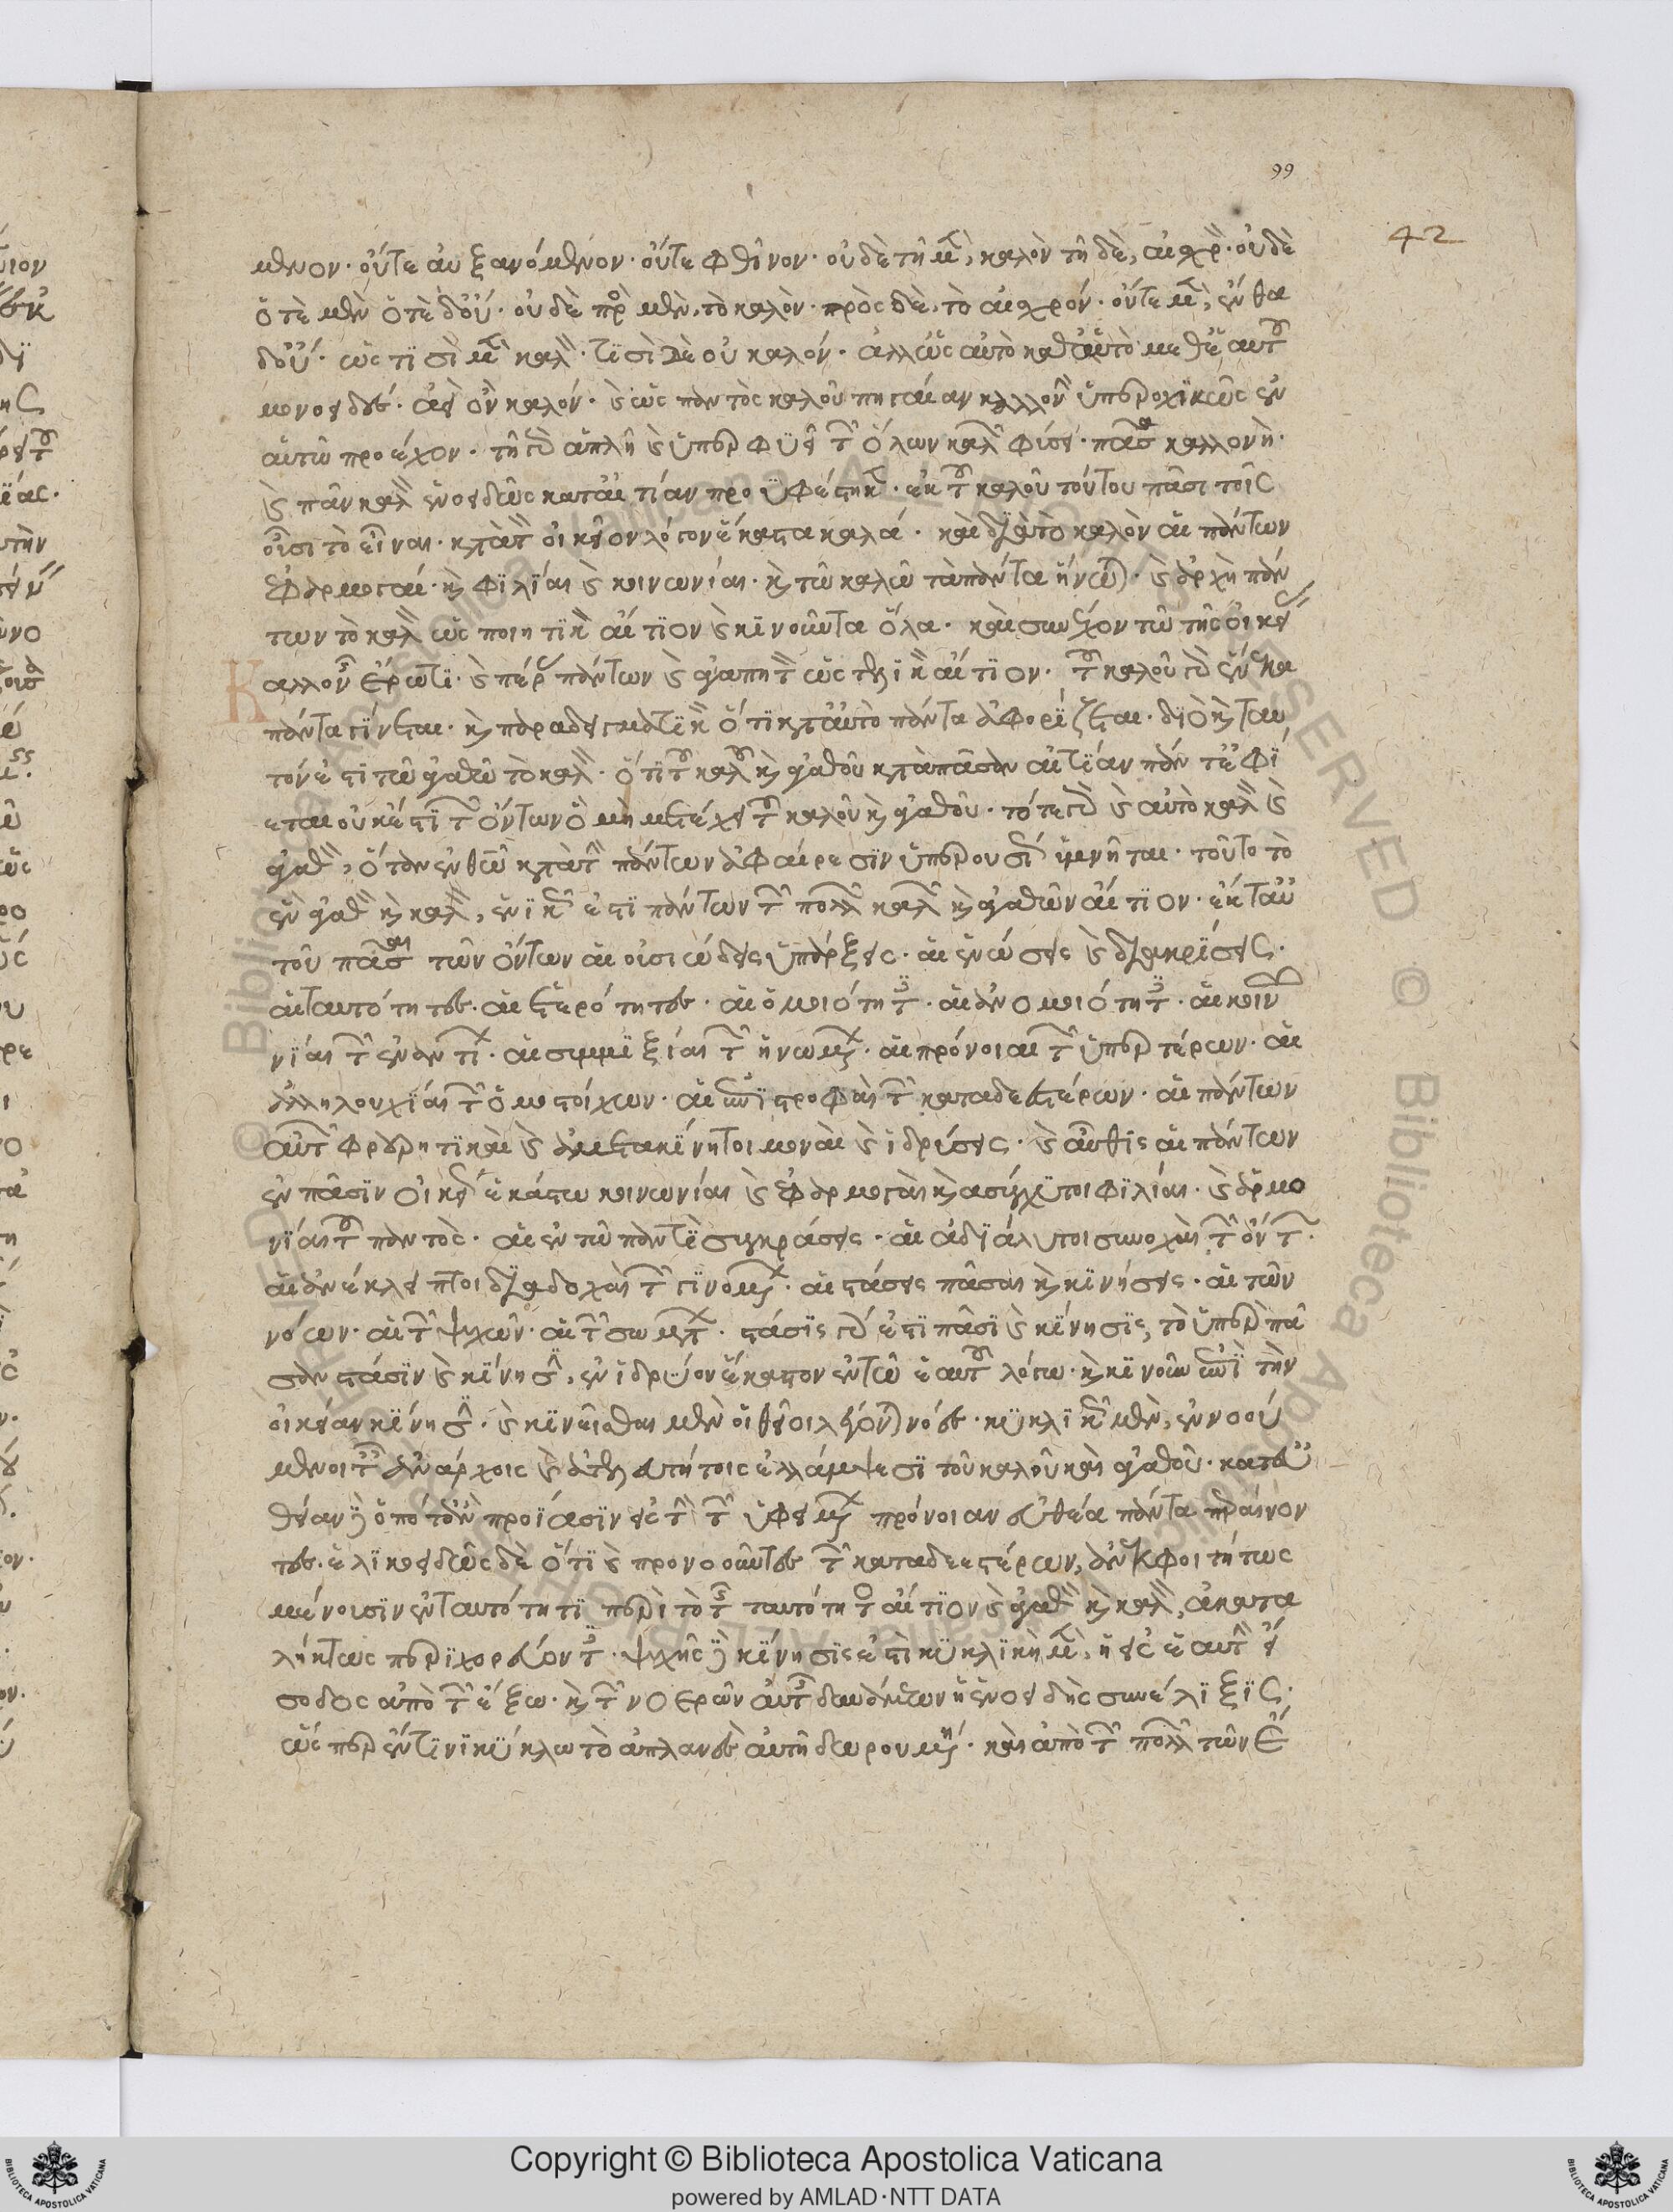 99
42
μενον· οὔτε αὐξανόμενον· οὔτε φθίνον· οὐδὲ τῆ μὲν, καλὸν τῆ δὲ, αἰσχρὸν· οὐδὲ
ὅτὲ μὲν ὅτὲ δ' οὔ· οὐδὲ πρὸς μὲν, τὸ καλὸν· πρὸς δὲ, τὸ αἰσχρόν· οὔτε μὲν, ἔνθα
δ' οὔ· ὥς τισὶ μὲν καλὸν· τισὶ δὲ οὐ καλόν· ἀλλ' ὡς αὐτὸ καθ' αὑτὸ μεθ' ἑαυτοῦ
μονοειδὲς· ἀεὶ ὂν καλόν· καὶ ὡς παντὸς καλοῦ πηγαίαν καλλονὴν ὑπεροχικῶς ἐν
αὑτῶ προέχον· τῆ γὰρ ἁπλῆ καὶ ὑπερφυεῖ τῶν ὅλων καλῶν φύσει· πᾶσα καλλονὴ·
καὶ πᾶν καλὸν ἑνοειδῶς κατ' αἰτίαν προϋφέστηκεν· ἐκ τοῦ καλοῦ τούτου πᾶσι τοῖς
οὖσι τὸ εἶναι· κατὰ τὸν οἰκεῖον λόγον ἕκαστα καλά· καὶ διὰ τὸ καλὸν αἱ πάντων
ἐφαρμογαί· καὶ φιλίαι καὶ κοινωνίαι· καὶ τῶ καλῶ τὰ πάντα ἥνωται· καὶ ἀρχὴ πάν
των τὸ καλὸν ὡς ποιητικὸν αἴτιον καὶ κινοῦντα ὅλα· καὶ συνέχον τῶ τῆς οἰκείας
καλλονῆς ἔρωτι· καὶ πέρας πάντων καὶ ἀγαπητὸν ὡς τελικὸν αἴτιον· τοῦ καλοῦ γὰρ ἕνεκα
πάντα γίνεται· καὶ παραδειγματικὸν ὅτι κατ' αὐτὸ πάντα ἀφορίζεται· διὸ καὶ ταυ
τόν ἐστι τῶ ἀγαθῶ τὸ καλὸν· ὅτι τοῦ καλοῦ καὶ ἀγαθοῦ κατὰ πᾶσαν αἰτίαν πάντ' ἐφί
εται οὐκ ἔστι τῶν ὄντων ὃ μὴ μετέχει τοῦ καλοῦ καὶ ἀγαθοῦ· τότε γὰρ καὶ αὐτὸ καλὸν καὶ
ἀγαθὸν, ὅταν ἐν θεῶ κατὰ τὴν πάντων ἀφαίρεσιν ὑπερουσίως ὑμνῆται· τοῦτο τὸ
ἓν ἀγαθὸν καὶ καλὸν, ἑνικῶς ἐστι πάντων τῶν πολλῶν καλῶν καὶ ἀγαθῶν αἴτιον· ἐκ ταύ
του πᾶσαι τῶν ὄντων αἱ οὐσιώδεις ὑπάρξεις· αἱ ἑνώσεις καὶ διακρίσεις·
αἱ ταυτότητες· αἱ ἑτερότητες· αἱ ὁμοιότητες· αἱ ἀνομοιότητες· αἱ κοινω
νίαι τῶν ἐναντίων· αἱ συμμιξίαι τῶν ἡνωμένων· αἱ πρόνοιαι τῶν ὑπερτέρων· αἱ
ἀλληλουχίαι τῶν ὁμοστοίχων· αἱ ἐπιστροφαὶ τῶν καταδεεστέρων· αἱ πάντων
αὐτῶν φρουρητικαὶ καὶ ἀμετακίνητοι μοναὶ καὶ ἱδρύσεις· καὶ αὖθις αἱ πάντων
ἐν πᾶσιν οἰκείως ἑκάστω κοινωνίαι καὶ ἐφαρμογαὶ καὶ ἀσύγχυτοι φιλίαι· καὶ ἁρμο
νίαι τοῦ παντὸς· αἱ ἐν τῶ παντὶ συγκράσεις· αἱ ἀδιάλυτοι συνοχαὶ τῶν ὄντων·
αἱ ἀνέκλειπτοι διαδοχαὶ τῶν γινομένων· αἱ στάσεις πᾶσαι καὶ κινήσεις· αἱ τῶν
νόων· αἱ τῶν ψυχῶν· αἱ τῶν σωμάτων· στάσις γάρ ἐστι πᾶσι καὶ κίνησις, τὸ ὑπὲρ πᾶ
σαν στάσιν καὶ κίνησιν, ἐνιδρύον ἕκαστον ἐν τῶ ἑαυτοῦ λόγω· καὶ κινοῦν ἐπὶ τὴν
οἰκείαν κίνησιν· καὶ κινεῖσθαι μὲν οἱ θεῖοι λέγονται νόες· κυκλικῶς μὲν, ἑνού
μενοι ταῖς ἀνάρχοις καὶ ἀτελευτήτοις ἐλλάμψεσι τοῦ καλοῦ καὶ ἀγαθοῦ· κατ' εὐ
θεῖαν δὲ ὁπόταν προΐασιν εἰς τὴν τῶν ὑφειμένων πρόνοιαν εὐθεία πάντα περαίνον
τες· ἑλικοειδῶς δὲ ὅτι καὶ προνοοῦντες τῶν καταδεεστέρων, ἀνεκφοιτήτως
μένουσιν ἐν ταυτότητι περὶ τὸ τῆς ταυτότητος αἴτιον καὶ ἀγαθὸν καὶ καλὸν, ἀκατα
λήκτως περιχορεύοντες· ψυχῆς δὲ κίνησις ἐστὶ κυκλικὴ μὲν, ἡ εἰς ἑαυτὴν εἴ
σοδος ἀπὸ τῶν ἔξω· καὶ τῶν νοερῶν αὐτῆς δυνάμεων ἡ ἑνοειδὴς συνέλιξις·
ὥσπερ ἔν τινι κύκλω τὸ ἀπλανὲς αὐτῆ δωρουμένη· καὶ ἀπὸ τῶν πολλῶν τῶν ἔ
Copyright © Biblioteca Apostolica Vaticana
powered by AMLAD·NTT DATA